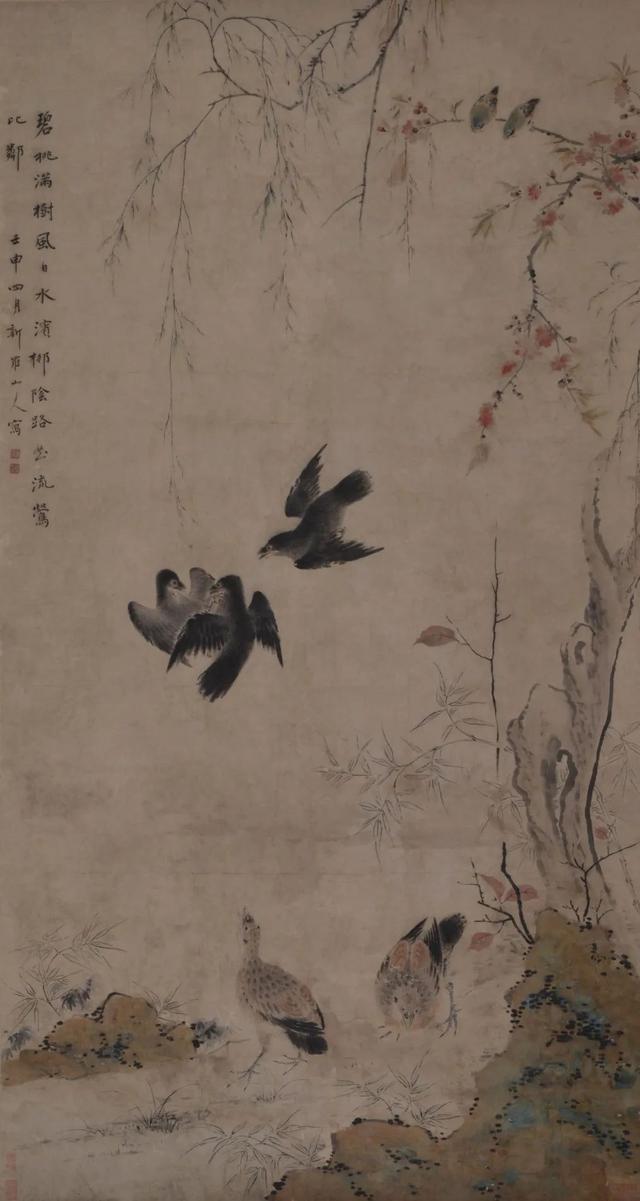 碧桃滿樹風日水濱柳陰路曲流鶯
比鄰 壬申四月新羅山人寫